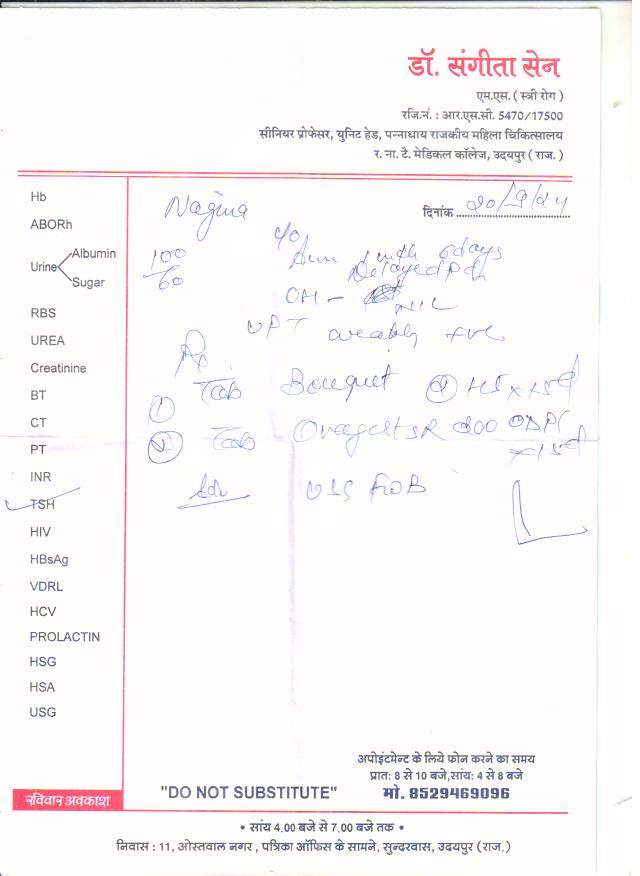 डॉ. संगीता सेन
एम.एस. ( स्त्री रोग )
रजि.नं. : आर.एस.सी. 5470/17500
सीनियर प्रोफेसर, युनिट हेड, पन्नाधाय राजकीय महिला चिकित्सालय
र. ना. टै. मेडिकल कॉलेज, उदयपुर ( राज. )
दिनांक
Nagma
c/o
100
60
6 days
Delayed
OH - NIL
UPT weakly +ve
Rx
① Tab Bouquet HS x 15d
② Tab SR 200 x 15d
Adv USG FWB
Hb
ABORh
Urine Albumin
Sugar
RBS
UREA
Creatinine
BT
CT
PT
INR
TSH
HIV
HBsAg
VDRL
HCV
PROLACTIN
HSG
HSA
USG
रविवार अवकाश
"DO NOT SUBSTITUTE"
अपोइंटमेन्ट के लिये फोन करने का समय
प्रात: 8 से 10 बजे,सांय: 4 से 8 बजे
मो. 8529469096
• सांय 4.00 बजे से 7.00 बजे तक •
निवास : 11, ओस्तवाल नगर , पत्रिका ऑफिस के सामने, सुन्दरवास, उदयपुर (राज.)